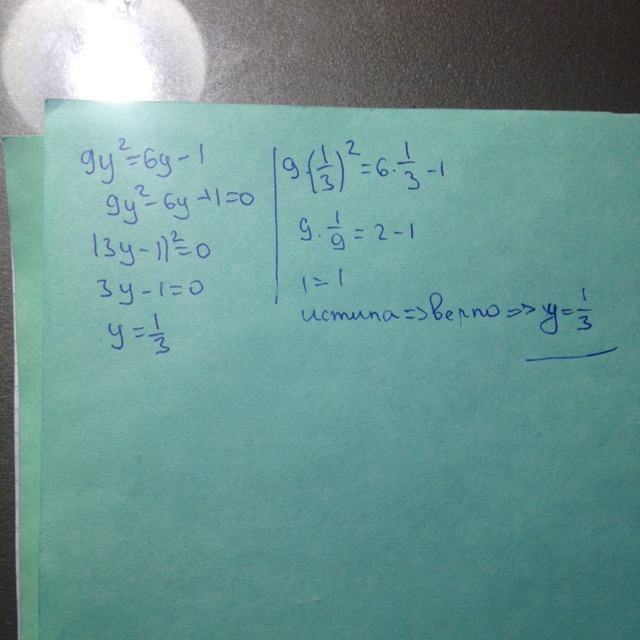 9y²=6y-1
9y²-6y+1=0
(3y-1)²=0
3y-1=0
y=1/3
9·(1/3)²=6·1/3-1
9·1/9=2-1
1=1
истина=>верно=>y=1/3